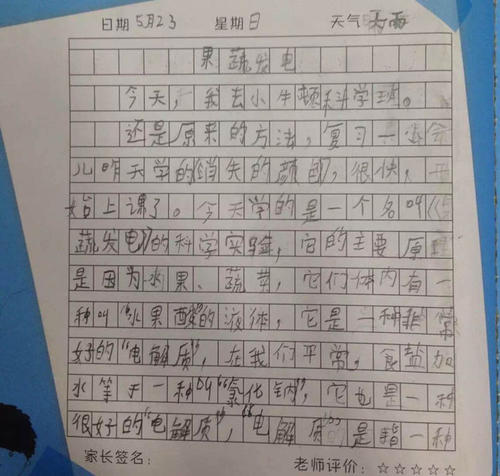 日期 5月23 星期日 天气 大雨
果蔬发电
今天，我去小牛顿科学班。
还是原来的方法，复习一小会
儿昨天学的《消失的颜色》，很快，开
始上课了。今天学的是一个名叫《果
蔬发电》的科学实验，它的主要原理
是因为水果、蔬菜，它们体内有一
种叫“水果酸”的液体，它是一种非常
好的“电解质”，在我们平常，食盐加
水等于一种叫“氯化钠”，它也是一种
很好的“电解质”，“电解质”是指一种
家长签名： 老师评价：☆☆☆☆☆